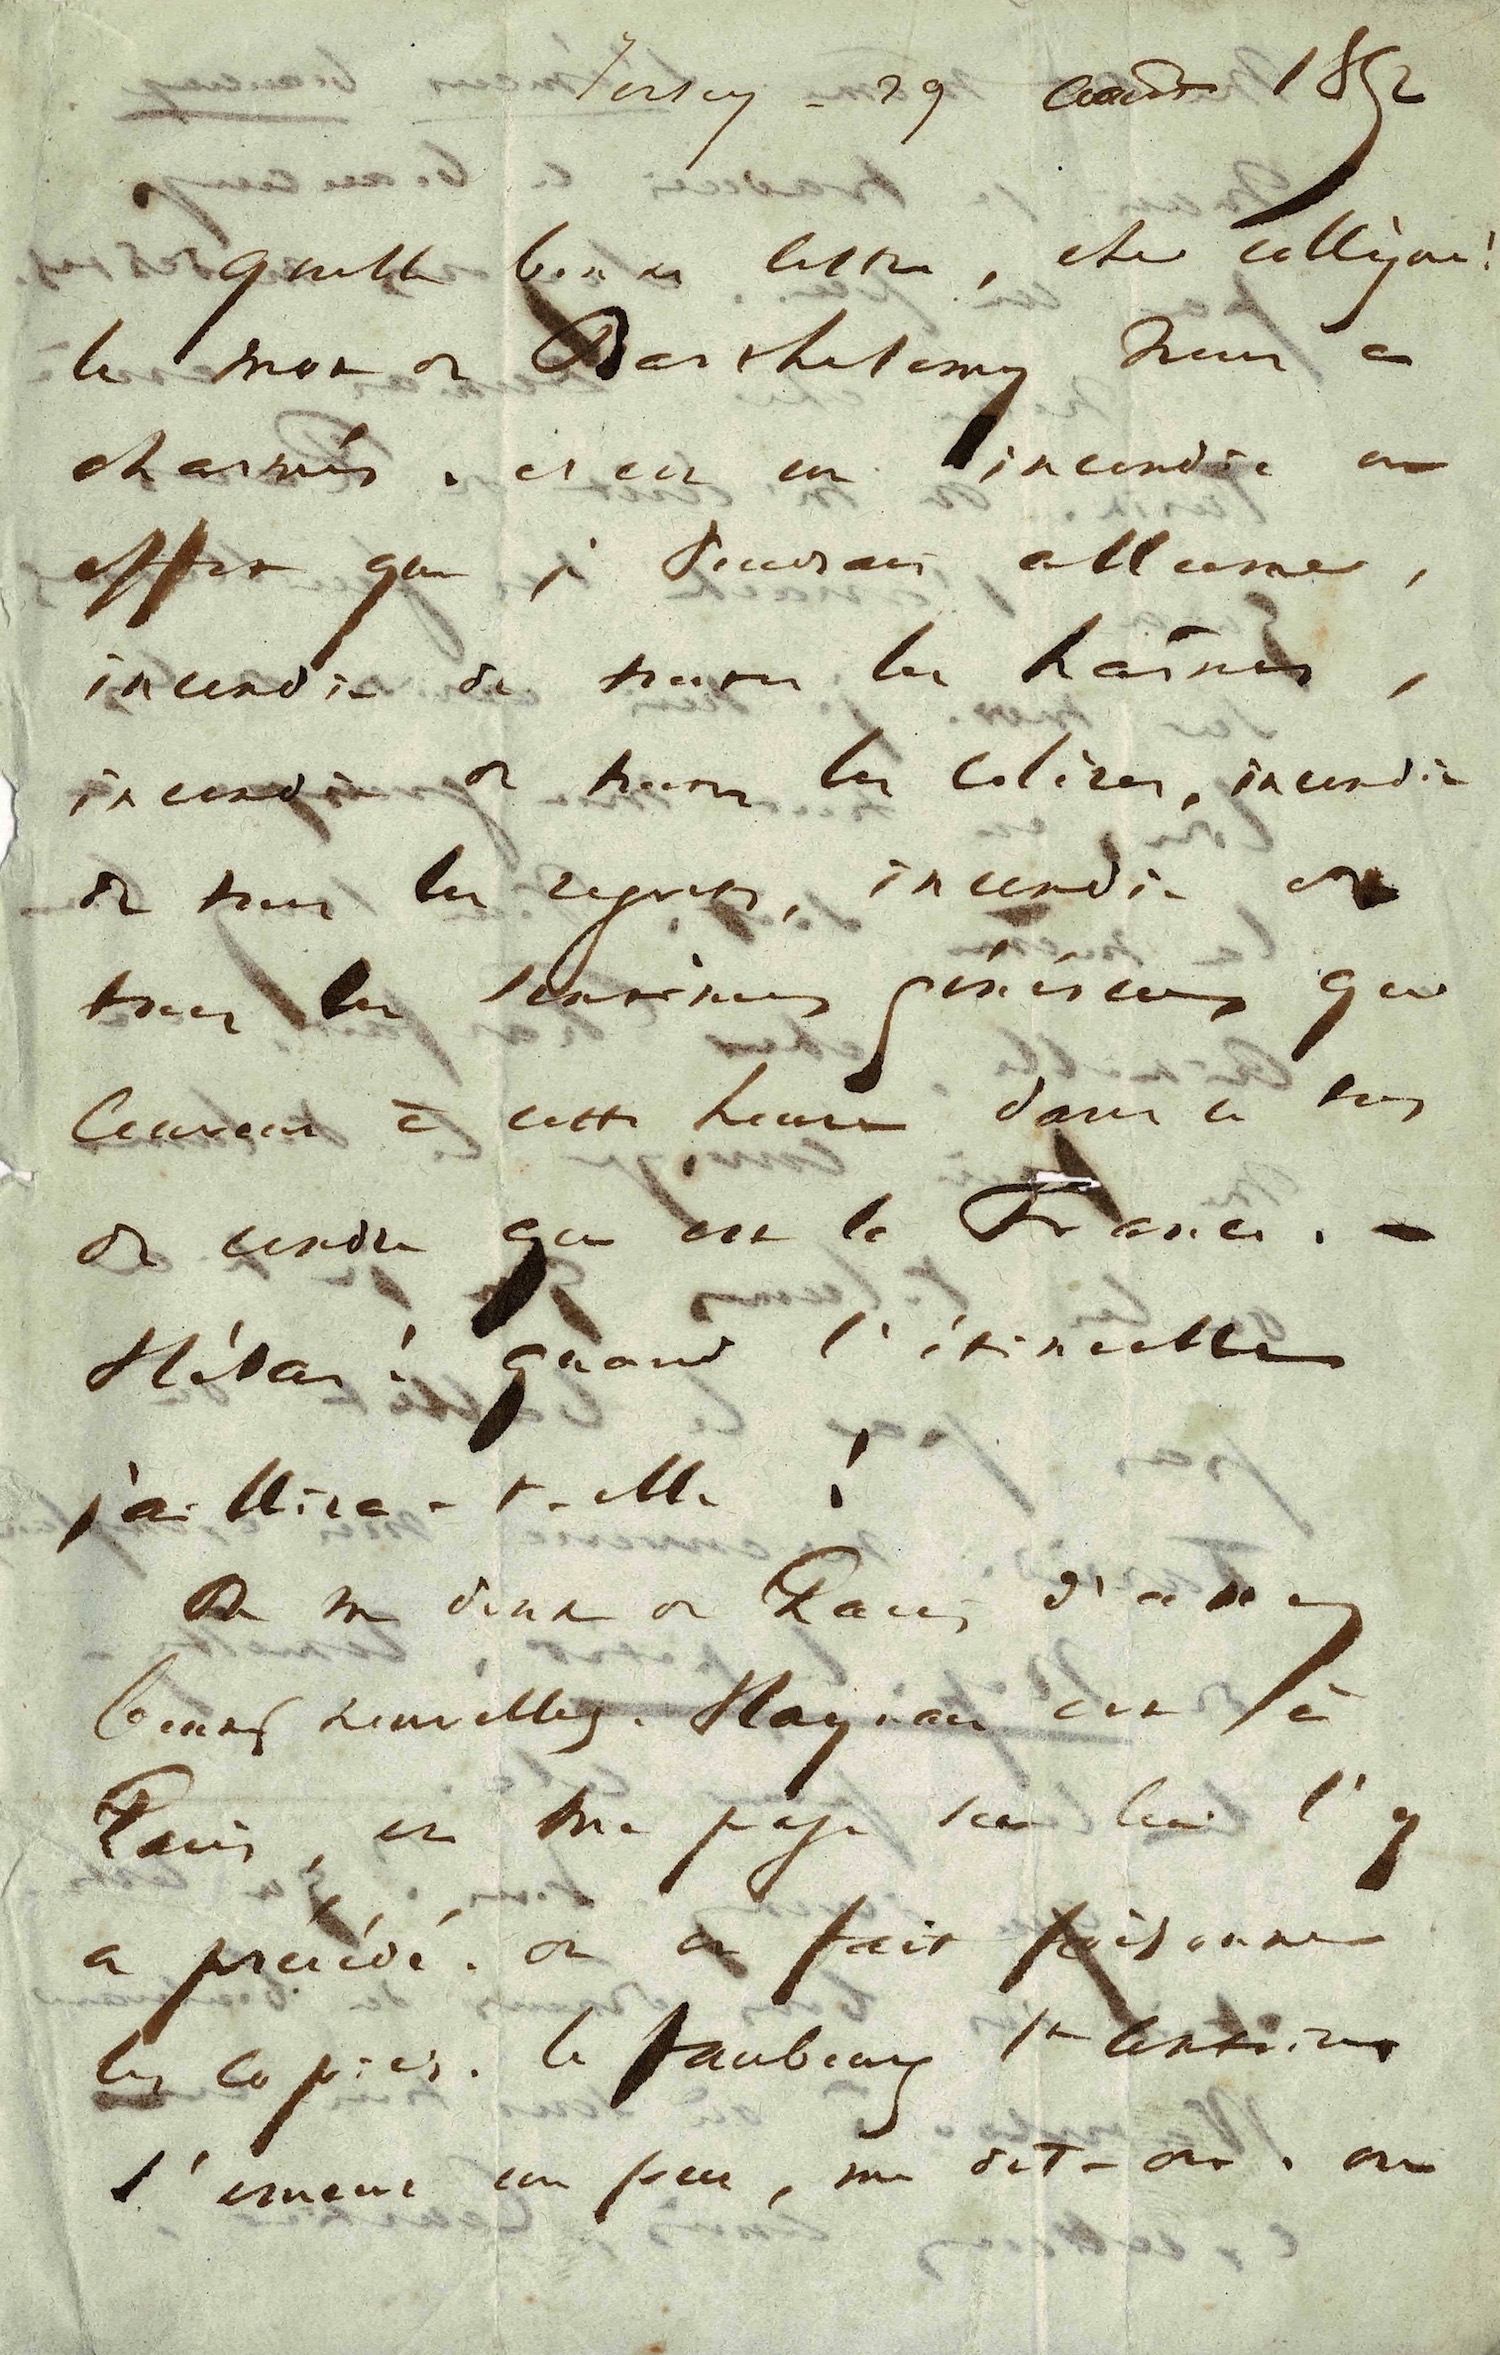 Jersey - 29 août 1852
quelle bonne lettre, cher collègue!
le mot de Barthelemy nous a
charmés. c'est un incendie en
effet que je voudrais allumer,
incendie de toutes les haînes,
incendie de toutes les colères, incendie
de tous les regrets, incendie de
tous les sentimens généreux qui
couvent à cette heure dans ce tas
de cendre qui est la France. -
Hélas! quand l'étincelle
jaillira-t-elle !
On me donne de Paris d'assez
bonnes nouvelles. Haynau est à
Paris, et ma page sur lui l'y
a précédé. on en fait foisonner
les copies. le faubourg St Antoine
s'émeut un peu, me dit-on. on